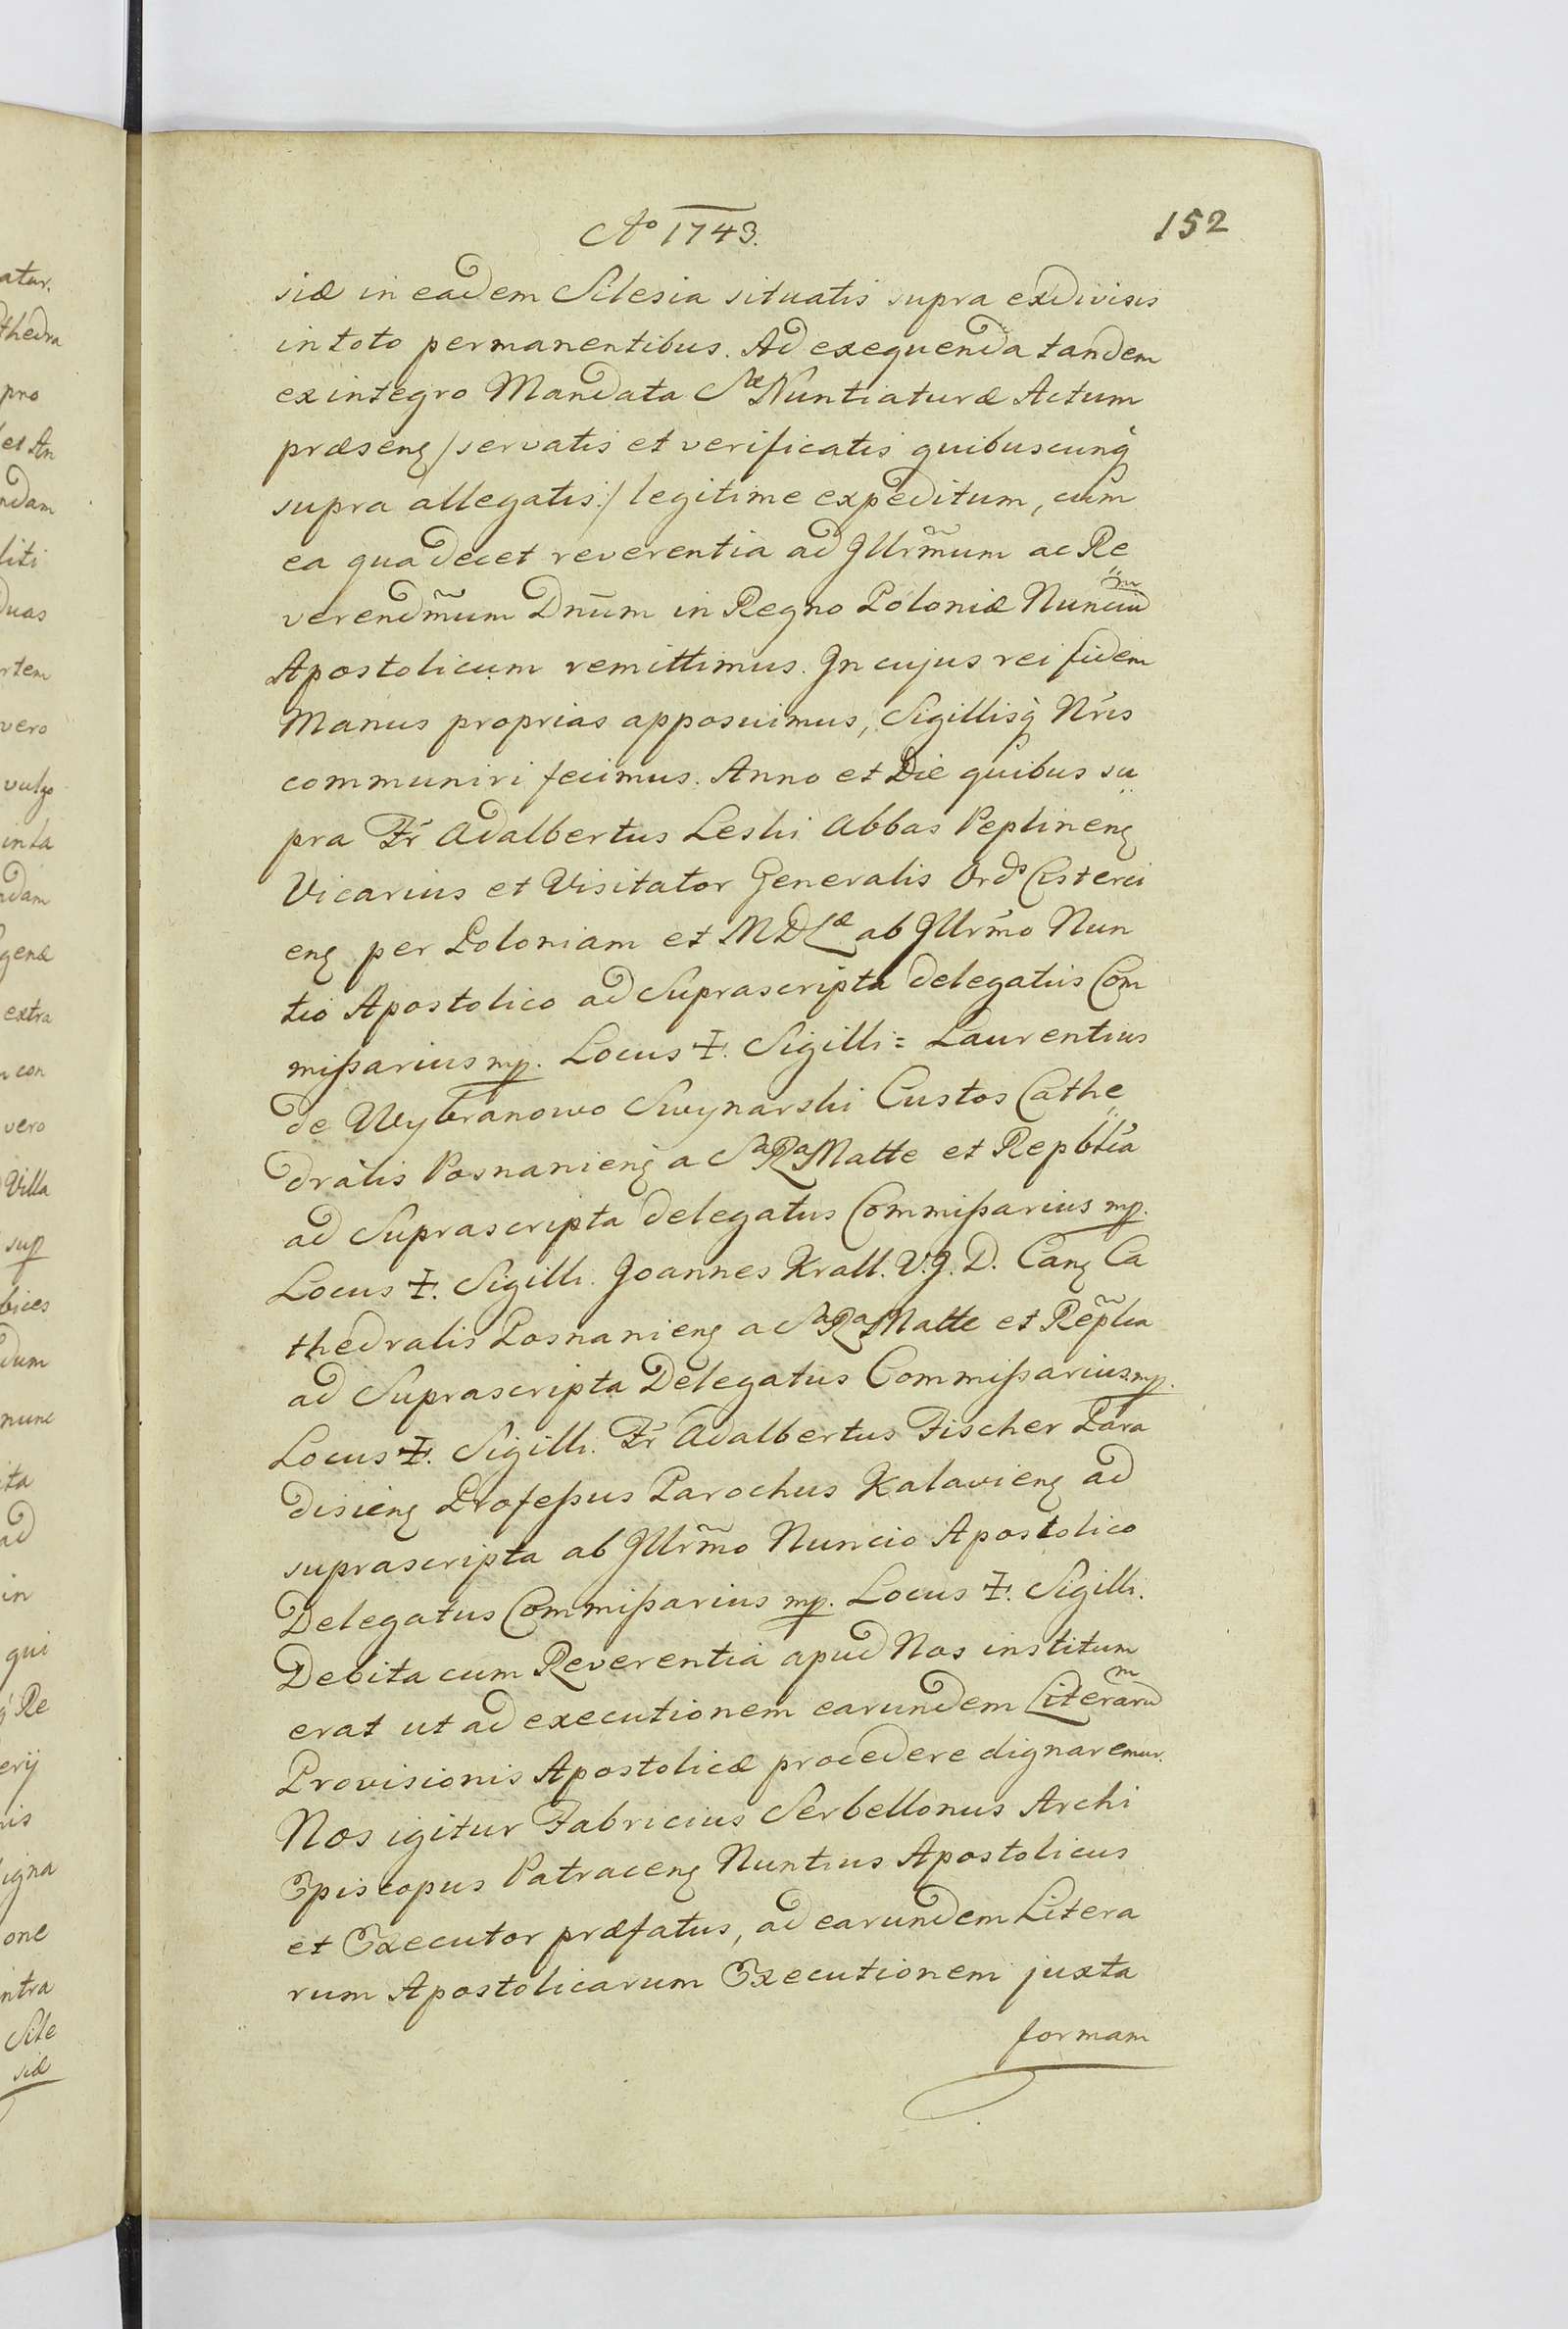 Ao 1743.
152
siæ in eadem Silesia situatis supra exdivisis
in toto permanentibus. Ad exequenda tandem
ex integro Mandata Sæ Nuntiaturæ Actum
præsens /servatis et verificatis quibuscunq̀
supra allegatis:/ legitime expeditum, cum
ea qua decet reverentia ad Illrm̃um ac Re
verendm̃um Dnūm in Regno Poloniæ Nunciũ
Apostolicum remittimus. In cujus rei fidem
Manus proprias apposuimus, Sigillisq̀ Nr̃is
communiri fecimus. Anno et Die quibus su
pra Fr Adalbertus Leski Abbas Peplinens
Vicarius et Visitator Generalis Ords Cisterci
ens per Poloniam et MDLæ ab Illrm̃o Nun
tio Apostolico ad Suprascripta delegatus Com
mißarius mp. Locus ‡. Sigilli = Laurentius
de Wybranowo Swynarski Custos Cathe
dralis Posnaniens a Sa Ra Matte et Repblĩa
ad Suprascripta delegatus Commißarius mp.
Locus ‡. Sigilli. Joannes Krall. V.J.D. Cans Ca
thedralis Posnaniens a Sa Ra Matte et Rep̃lia
ad Suprascripta Delegatus Commißarius mp.
Locus ‡. Sigilli. Fr Adalbertus Fischer Para
disiens Profeßus Parochus Kalaviens ad
suprascripta ab Illrm̃o Nuncio Apostolico
Delegatus Commißarius mp. Locus ‡. Sigilli.
Debita cum Reverentia apud Nos institum
erat ut ad executionem earundem Literarum
Provisionis Apostolicæ procedere dignaremur.
Nos igitur Fabricius Serbellonus Archi
Episcopus Patracens Nuntius Apostolicus
et Executor præfatus, ad earundem Litera
rum Apostolicarum Executionem juxta
formam